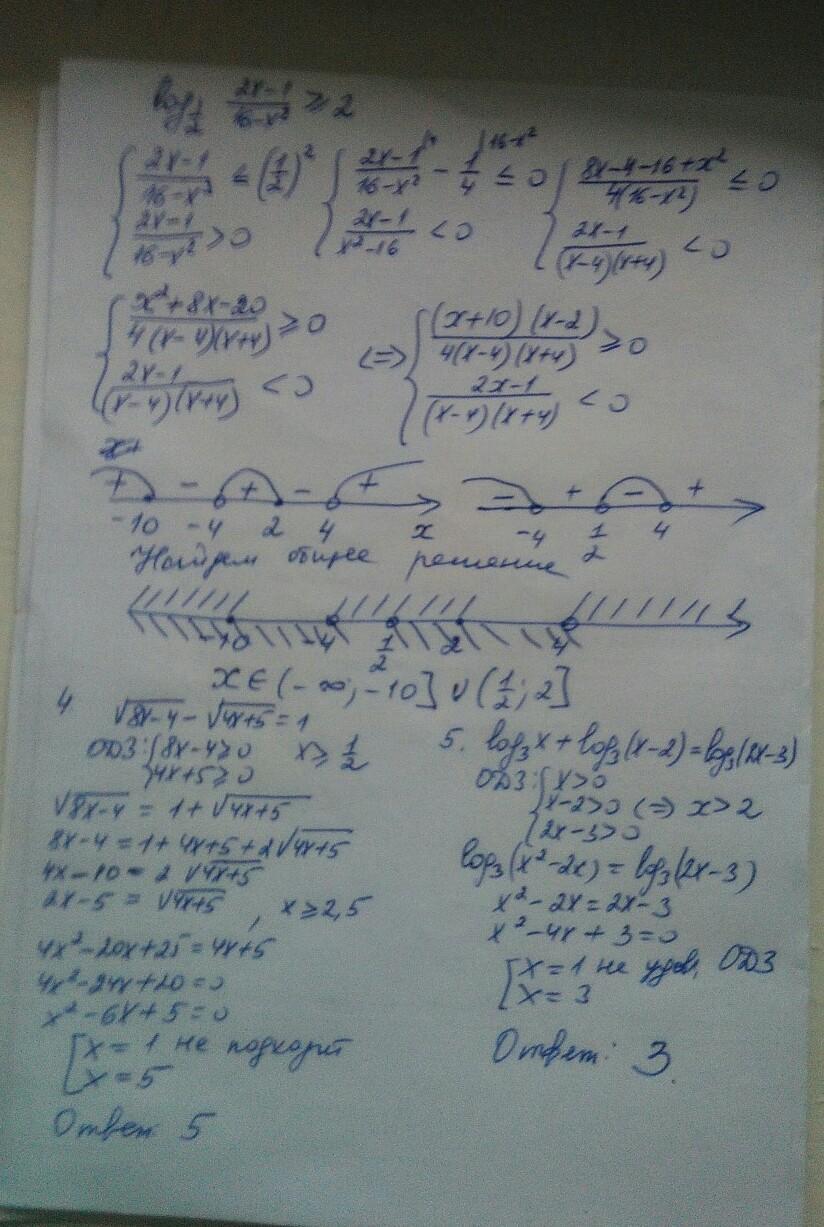 log_{1/2} (2x-1)/(16-x²) ≥ 2
{ (2x-1)/(16-x²) ≤ (1/2)² ; (2x-1)/(16-x²) > 0 { (2x-1)/(16-x²) - 1/4 ≤ 0 |16-x² ; (2x-1)/(x²-16) < 0 { (8x-4-16+x²)/(4(16-x²)) ≤ 0 ; (2x-1)/((x-4)(x+4)) < 0
{ (x²+8x-20)/(4(x-4)(x+4)) ≥ 0 ; (2x-1)/((x-4)(x+4)) < 0 <=> { (x+10)(x-2)/(4(x-4)(x+4)) ≥ 0 ; (2x-1)/((x-4)(x+4)) < 0
+ - + - + - + - +
-10 -4 2 4 x -4 1/2 4
Найдем общее решение
-10 -4 1/2 2 4
x ∈ (-∞; -10] ∪ (1/2; 2]
4
√(8x-4) - √(4x+5) = 1
ОДЗ: { 8x-4≥0 x ≥ 1/2
4x+5≥0
√(8x-4) = 1 + √(4x+5)
8x-4 = 1+4x+5+2√(4x+5)
4x-10 = 2√(4x+5)
2x-5 = √(4x+5) , x ≥ 2,5
4x²-20x+25 = 4x+5
4x²-24x+20=0
x²-6x+5=0
[ x=1 не подходит
x=5
Ответ 5
5. log₃x + log₃(x-2) = log₃(2x-3)
ОДЗ: { x>0
x-2>0 <=> x>2
2x-3>0
log₃(x²-2x) = log₃(2x-3)
x²-2x = 2x-3
x²-4x+3=0
[ x=1 не удов. ОДЗ
x=3
Ответ: 3.